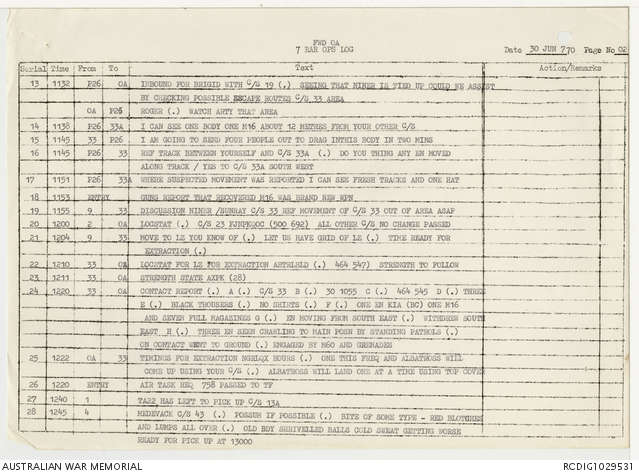 FWD OA
7 RAR OPS LOG Date 30 JUN 770 Page No 02
Serial Time From To Text Action/Remarks
13 1132 P26 OA INBOUND FOR BRIGID WITH C/S 19 (,) SEEING THAT NINER IS TIED UP COULD WE ASSIST
BY CHECKING POSSIBLE ESCAPE ROUTES C/S 33 AREA
OA P26 ROGER (.) WATCH ARTY THAT AREA
14 1138 P26 33A I CAN SEE ONE BODY ONE M16 ABOUT 12 METRES FROM YOUR OTHER C/S
15 1145 33 P26 I AM GOING TO SEND FOUR PEOPLE OUT TO DRAG INTHIS BODY IN TWO MINS
16 1145 P26 33 REF TRACK BETWEEN YOURSELF AND C/S 33A (.) DO YOU THING ANY EN MOVED
ALONG TRACK / YES TO C/S 33A SOUTH WEST
17 1151 P26 33A WHERE SUSPECTED MOVEMENT WAS REPORTED I CAN SEE FRESH TRACKS AND ONE HAT
18 1153 ENTRY GUNS REPORT THAT RECOVERED M16 WAS BRAND NEW WPN
19 1155 9 33 DISCUSSION NINER /SUNRAY C/S 33 REF MOVEMENT OF C/S 33 OUT OF AREA ASAP
20 1200 2 OA LOCSTAT (.) C/S 23 FJNPKQOC (500 692) ALL OTHER C/S NO CHANGE PASSED
21 1204 9 33 MOVE TO LZ YOU KNOW OF (.) LET US HAVE GRID OF LZ (.) TIME READY FOR
EXTRACTION (.)
22 1210 33 OA LOCSTAT FOR LZ FOR EXTRACTION ARTRLHLD (.) 464 547) STRENGTH TO FOLLOW
23 1211 33 OA STRENGTH STATE AXPK (28)
24 1220 33 OA CONTACT REPORT (.) A (.) C/S 33 B (.) 30 1055 C (.) 464 545 D (.) THREE
E (.) BLACK TROUSERS (.) NO SHIRTS (.) F (.) ONE EN KIA (BC) ONE M16
AND SEVEN FULL MAGAZINES G (.) EN MOVING FROM SOUTH EAST (.) WITHDREW SOUTH
EAST H (.) THREE EN SEEN CRAWLING TO MAIN POSN BY STANDING PATROLS (.)
ON CONTACT WENT TO GROUND (.) ENGAGED BY M60 AND GRENADES
25 1222 OA 33 TIMINGS FOR EXTRACTION NGHLQX HOURS (.) ONE THIS FREQ AND ALBATROSS WILL
COME UP USING YOUR C/S (.) ALBATROSS WILL LAND ONE AT A TIME USING TOP COVER
26 1220 ENTRY AIR TASK REQ 758 PASSED TO TF
27 1240 1 TA22 HAS LEFT TO PICK UP C/S 13A
28 1245 4 MEDEVACK C/S 43 (.) POSSUM IF POSSIBLE (.) BITE OF SOME TYPE - RED BLOTCHES
AND LUMPS ALL OVER (.) OLD BOY SHRIVELLED BALLS COLD SWEAT GETTING WORSE
READY FOR PICK UP AT 13000
AUSTRALIAN WAR MEMORIAL RCDIG1029531